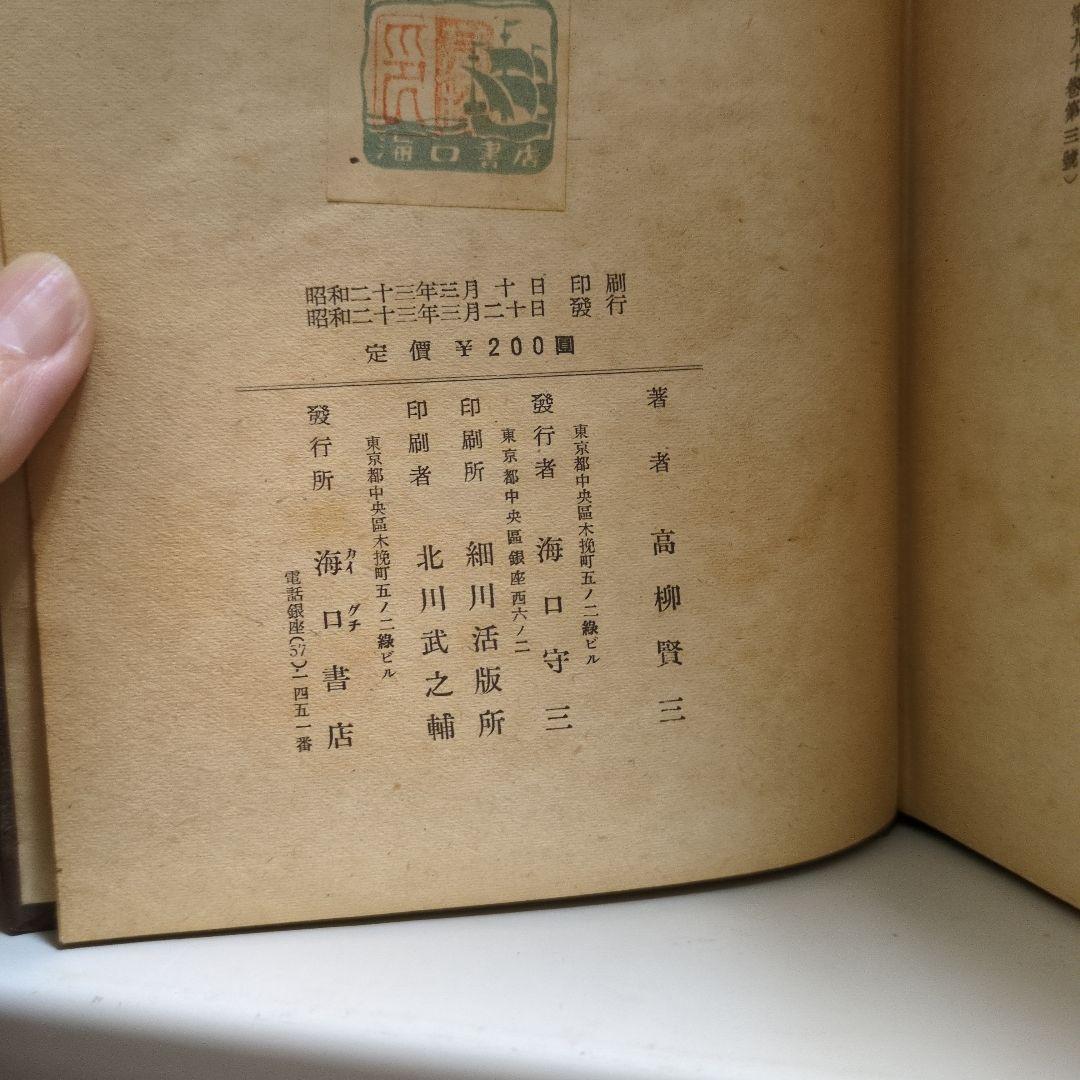 第三號）
海口書店
昭和二十三年三月十日 印刷
昭和二十三年三月二十日 發行
定價 ￥200圓
著者 高柳賢三
東京都中央區木挽町五ノ二綠ビル
發行者 海口守三
東京都中央區銀座西六ノ二
印刷所 細川活版所
印刷者 北川武之輔
東京都中央區木挽町五ノ二綠ビル
發行所 海口書店
カイ グチ
電話銀座(57)・一四五一番